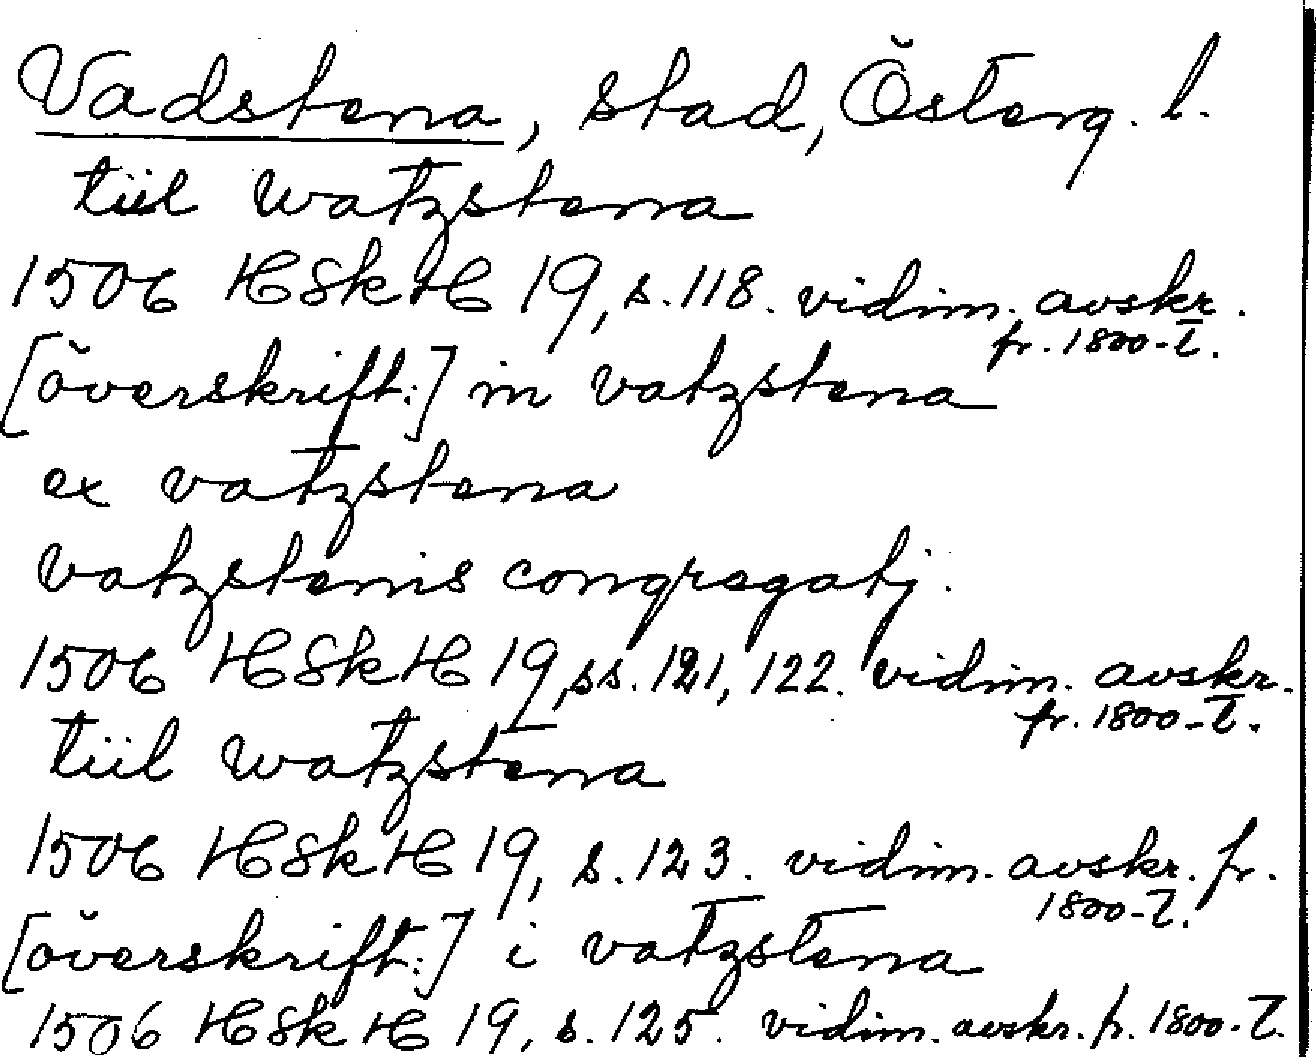 Vadstena, stad, Österg. l.
tiil watzstena
1506 HSkH 19, s. 118. vidim. avskr.
fr. 1800-t.
[överskrift:] in vatzstena
ex vatzstena
vatzstenis congregatj.
1506 HSkH 19, ss. 121, 122. vidim. avskr.
fr. 1800-t.
tiil watzstena
1506 HSkH 19, s. 123. vidim. avskr. fr.
1800-t.
[överskrift:] i vatzstena
1506 HSkH 19, s. 125. vidim. avskr. fr. 1800-t.